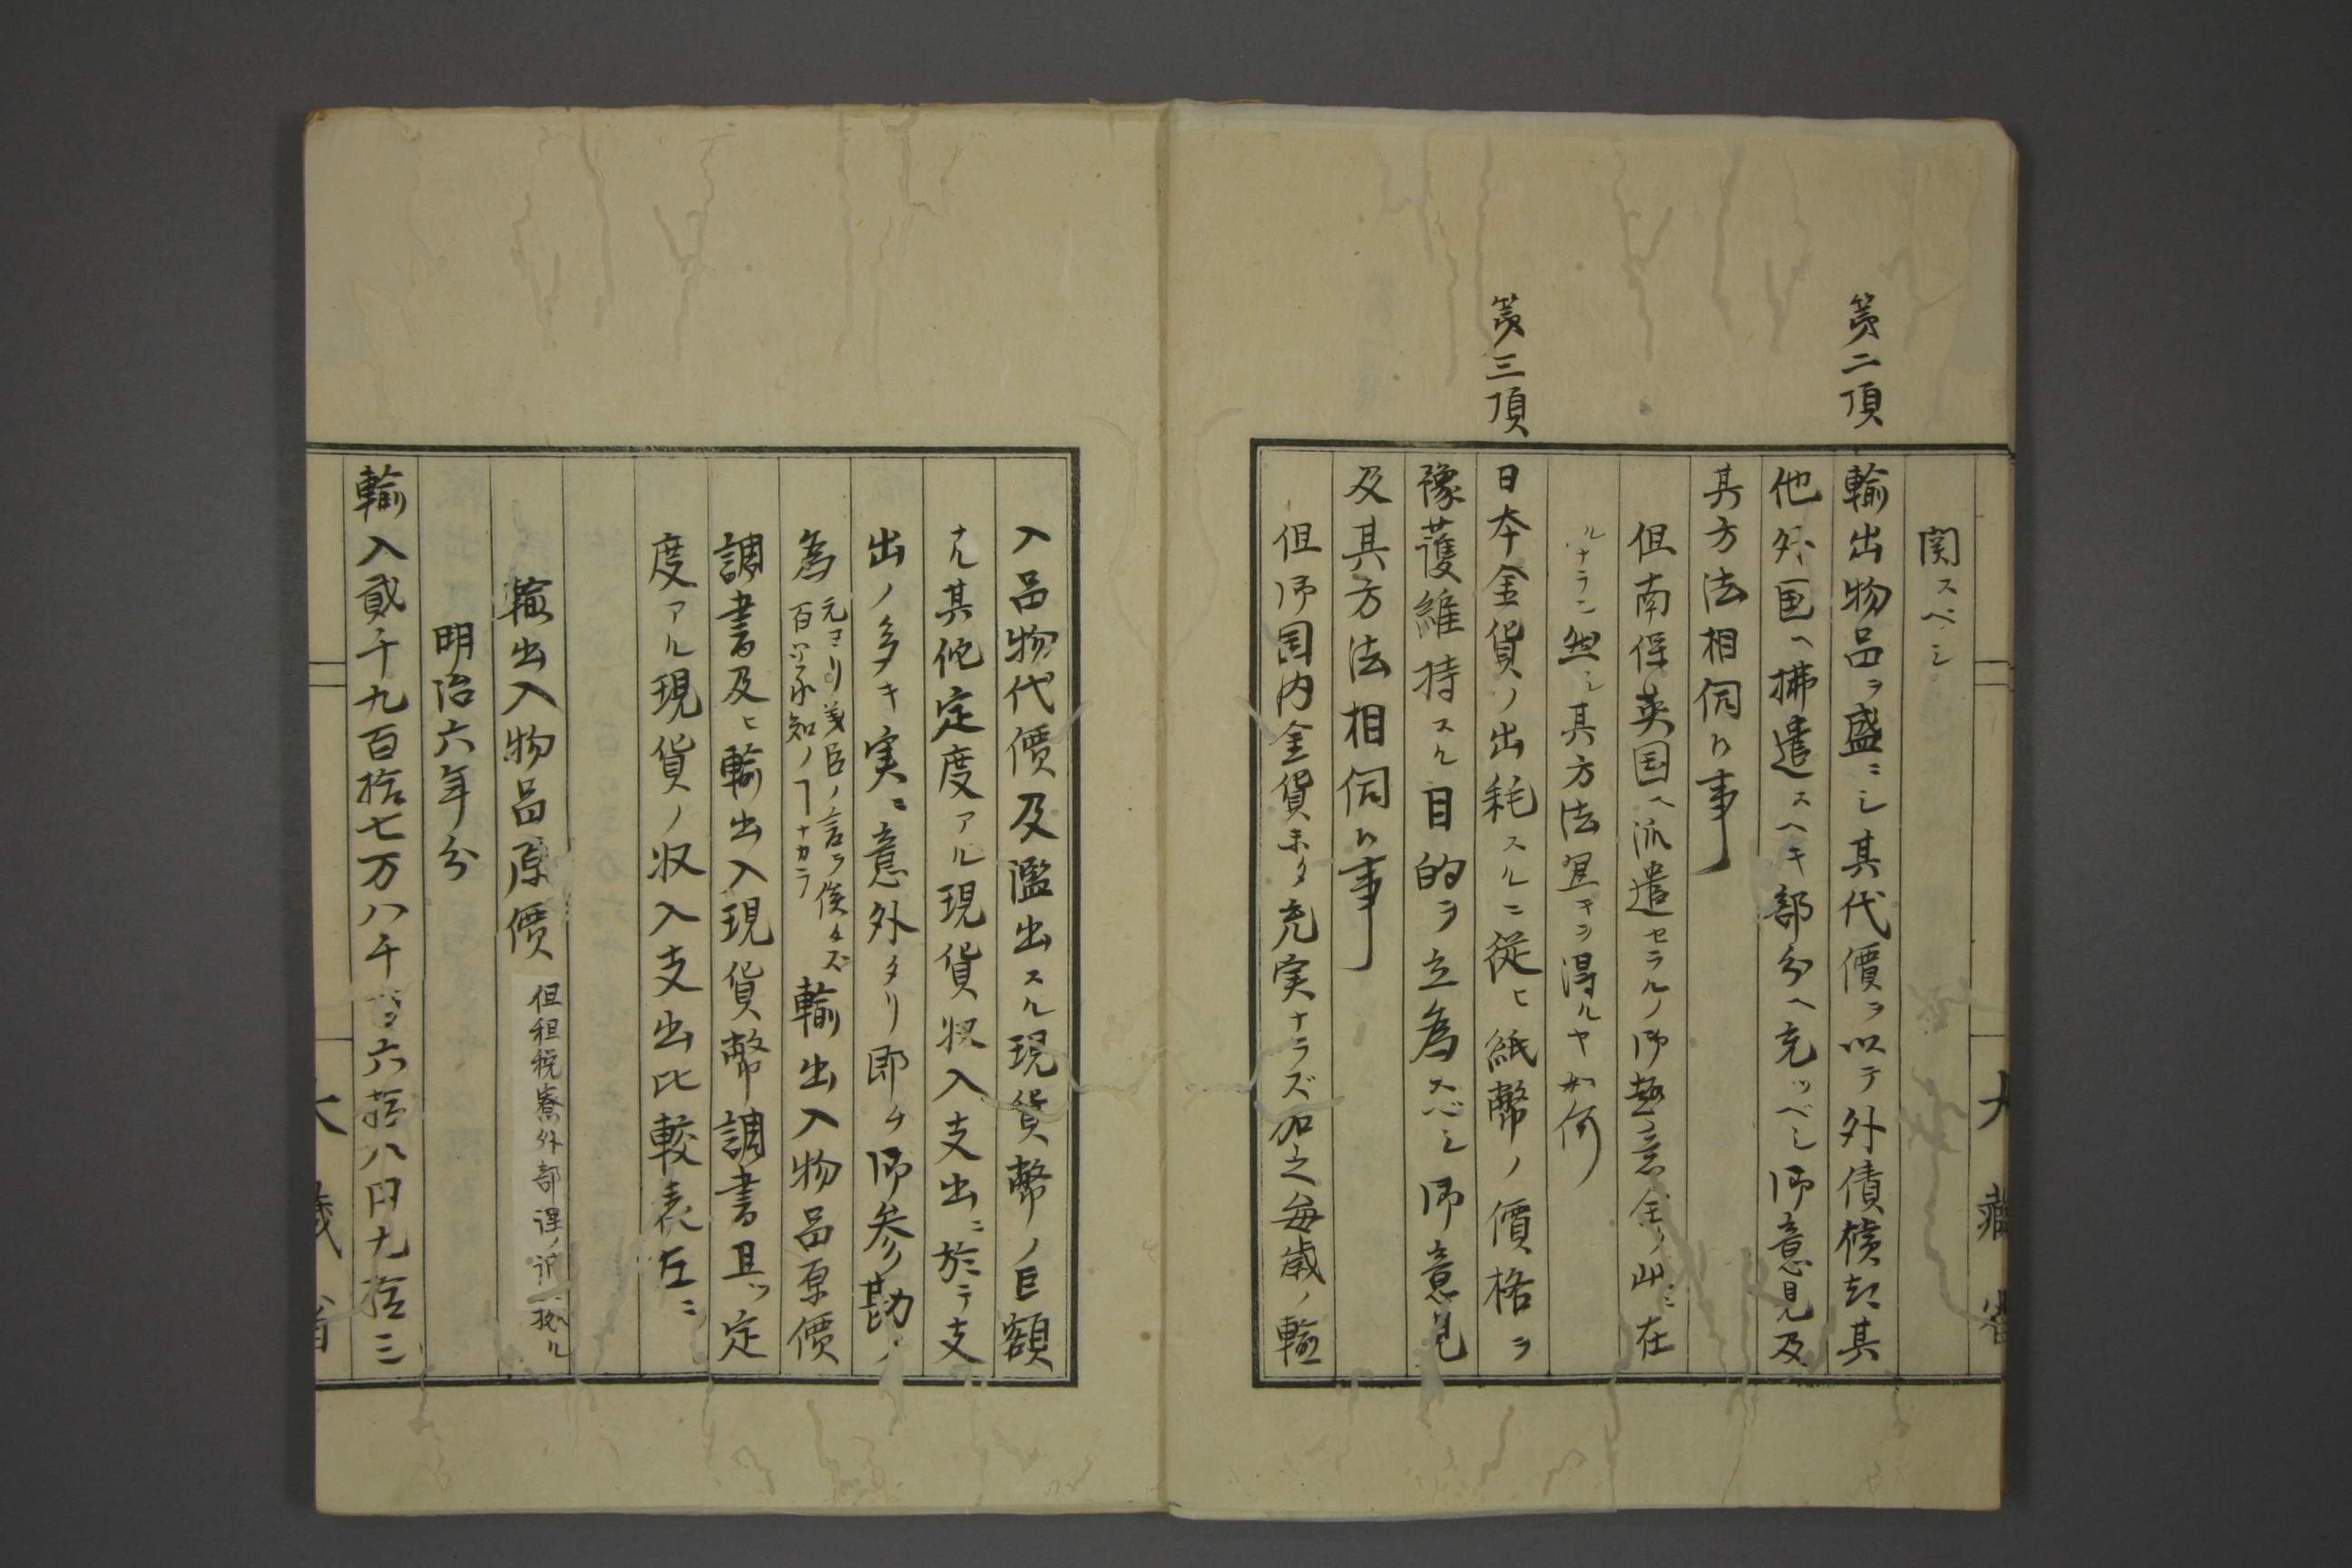 関スベシ
第二項
輸出物品ヲ盛ニシ其代價ヲ以テ外債償却其
他外国ヘ拂遣スヘキ部分ヘ充ツベシ御意見及
其方法相伺候事
但南保英国ヘ派遣セラルノ御趣意全ク此ニ在
ルナラン然シ其方法宜キヲ得ルヤ如何
第三項
日本金貨ノ出耗スルニ従ヒ紙幣ノ價格ヲ
豫護維持スル目的ヲ立為スベシ御意見
及其方法相伺候事
但御国内金貨未タ充実ナラズ加之毎歳ノ輸
大藏省
入品物代價及濫出スル現貨幣ノ巨額
ナル其他定度アル現貨収入支出ニ於テ支
出ノ多キ実ニ意外タリ即チ御参勘ノ
為 元ヨリ義臣ノ言ヲ俟タズ
百ハ承知ノヿナカラ
輸出入物品原價
調書及ヒ輸出入現貨幣調書且ツ定
度アル現貨ノ収入支出比較表左ニ
輸出入物品原價 但租税寮外部課ノ訳ニ拠ル
明治六年分
輸入貳千九百拾七万八千 六拾八円九拾三
大藏省